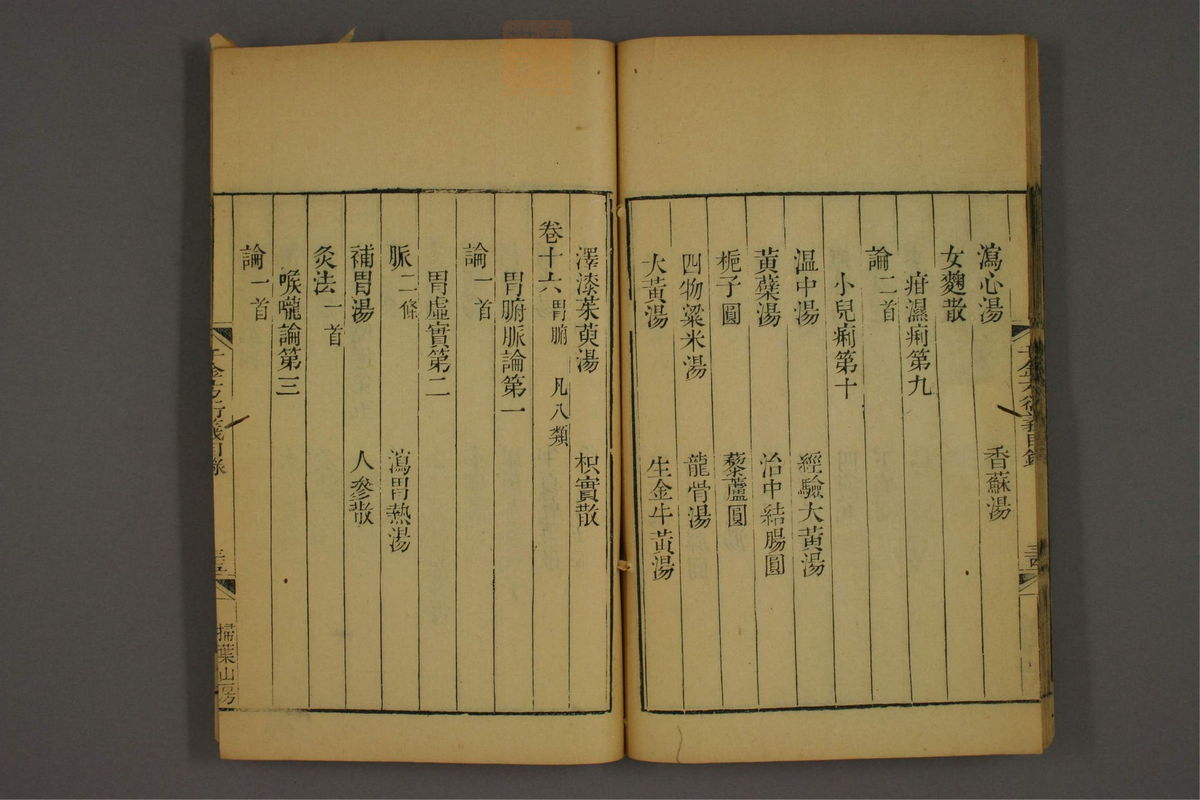 瀉心湯 香蘇湯
女麴散
疳濕痢第九
論二首
小兒痢第十
温中湯 經驗大黃湯
黃蘗湯 治中結腸圓
梔子圓 藜蘆圓
四物粱米湯 龍骨湯
大黃湯 生金牛黃湯
千金方衍義目錄
澤漆茱萸湯 枳實散
卷十六 胃腑 凡八類
胃腑脈論第一
論一首
胃虛實第二
脈二條 瀉胃熱湯
補胃湯 人參散
灸法一首
喉嚨論第三
論一首
千金方衍義目錄
掃葉山房